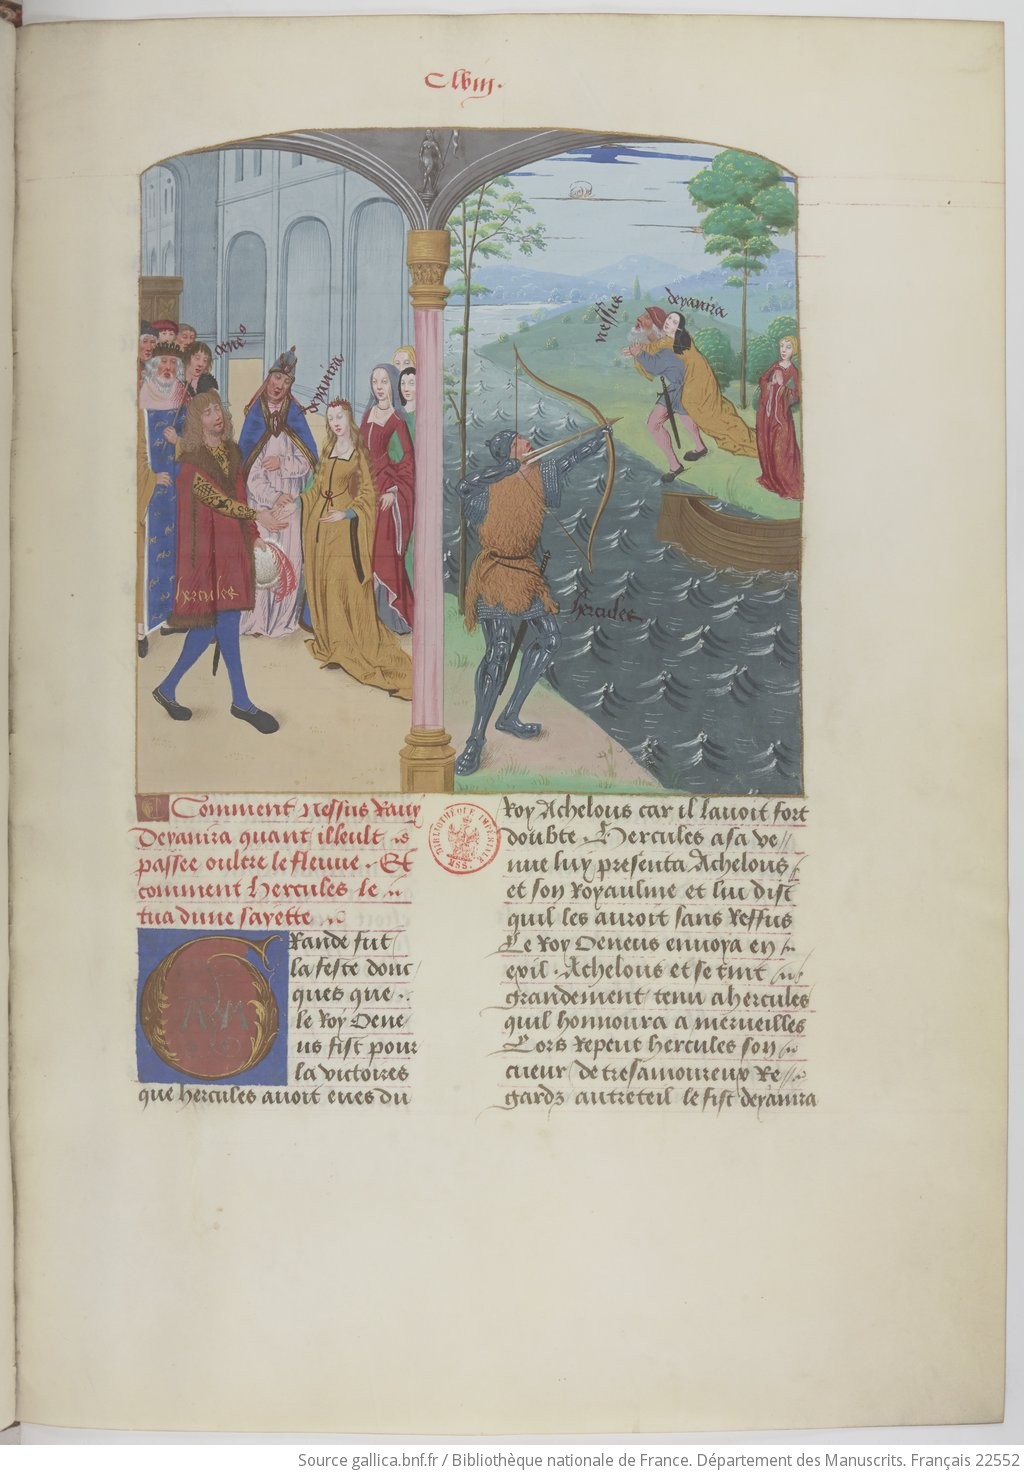 Clviij.
oene9
deyanira
hercules
nessus
deyanira
hercules
Comment Nessus Rauy
Deyanira quant illeult
passee oultre le fleuue. Et
comment hercules le
tua dune sayette
GRande fut
la feste donc
ques que
le Roy Oene
us fist pour
la victoires
que hercules auoit eues du
BIBLIOTHÈQUE IMPÉRIALE
MSS.
Roy Achelous car il lauoit fort
doubte. Hercules a sa ve
nue luy presenta Achelous
et son Royaulme et luy dist
quil les auroit sans Reffus
Le Roy Oeneus enuoya en
exil. Achelous et se tint
grandement tenu a hercules
quil honnoura a merueilles
Lors Repeut hercules son
cueur de tresamoureux Re
gardz autreteil le fist deyanira
Source gallica.bnf.fr / Bibliothèque nationale de France. Département des Manuscrits. Français 22552